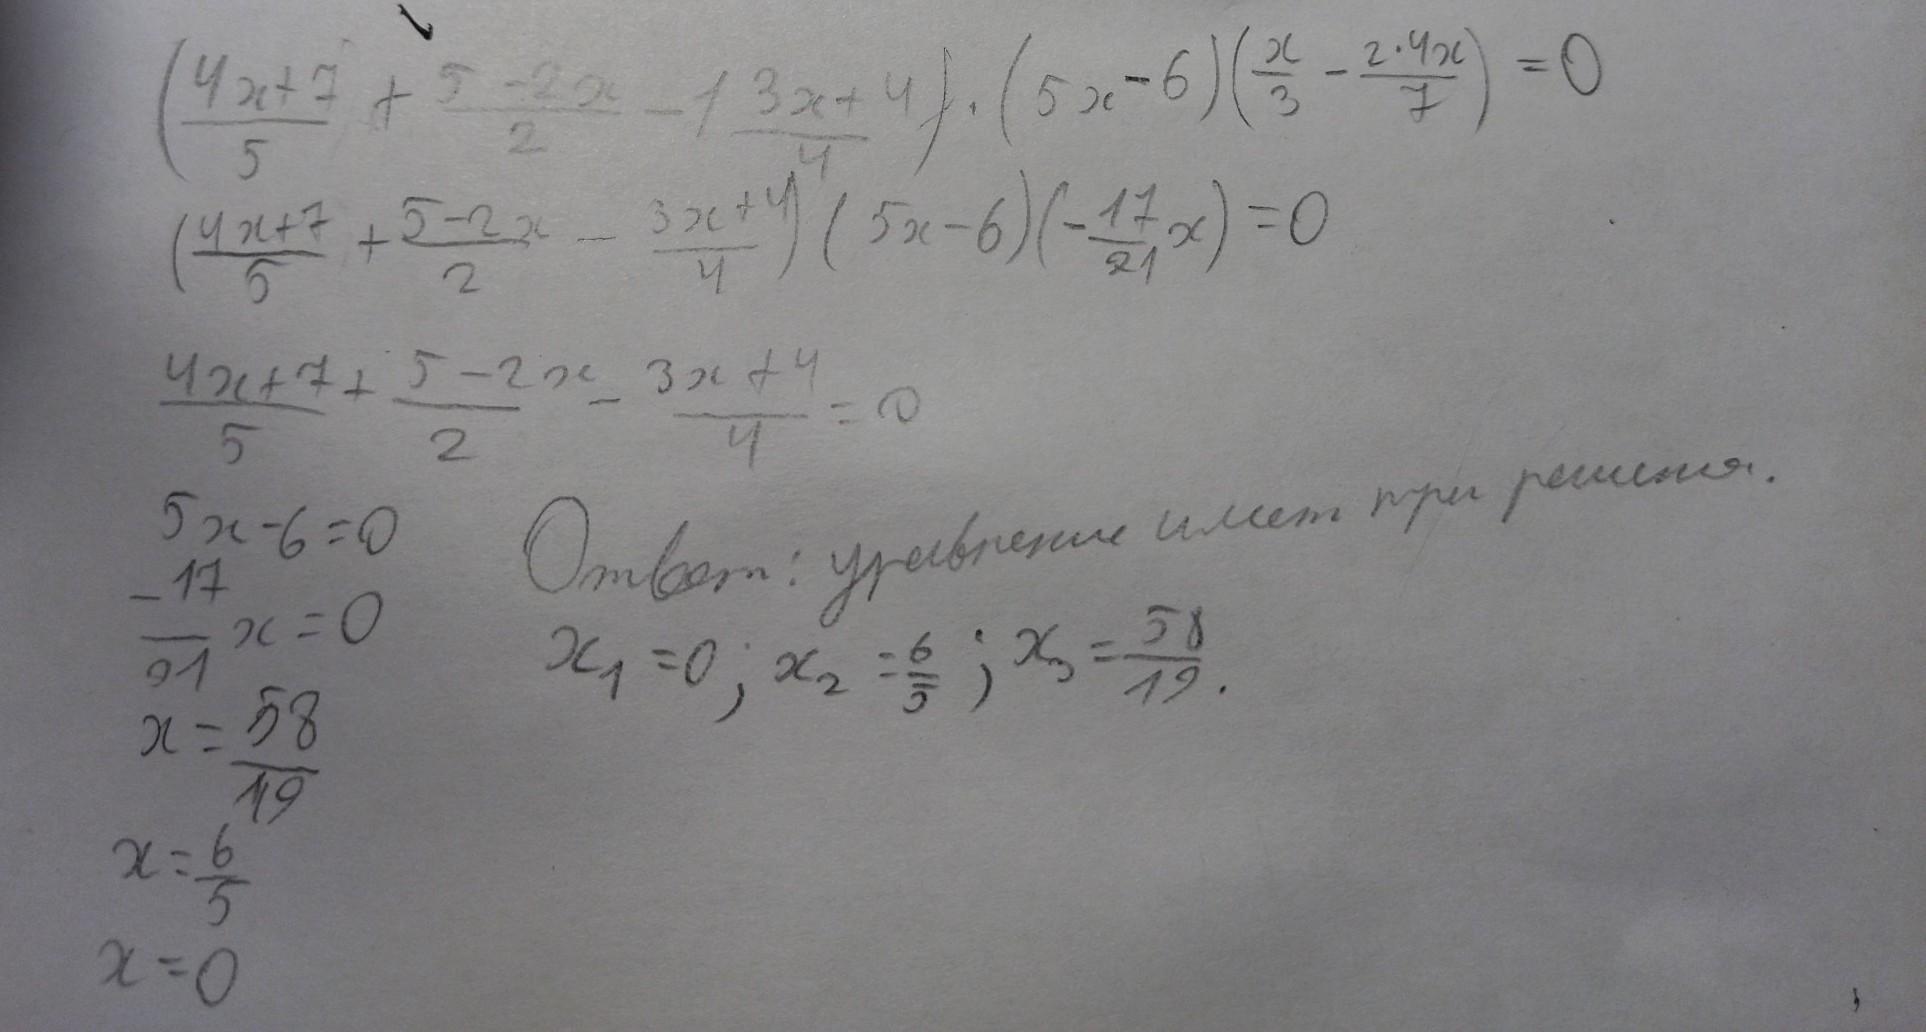 (4x+7/5 + 5-2x/2 - 1 3x+4/4) · (5x-6)(x/3 - 2·4x/7) = 0
(4x+7/5 + 5-2x/2 - 3x+4/4)(5x-6)(-17/21 x) = 0
4x+7/5 + 5-2x/2 - 3x+4/4 = 0
5x-6=0
-17/21 x = 0
x = 58/19
x = 6/5
x = 0
Ответ: уравнение имеет три решения.
x₁ = 0; x₂ = 6/5; x₃ = 58/19.